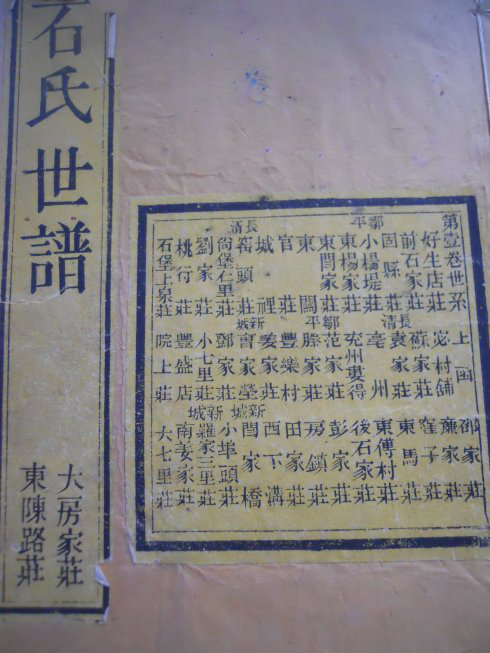 第壹卷世系 上函 邵家莊
好生店莊 宓村舖 亷家莊
前石家莊 蘇家莊 窪子莊
固縣莊 長清袁家莊 東馬莊
鄒平小楊堤莊 亳州 東傅村
東楊家莊 兖州 得 後石家莊
東閆家莊 鄒平范家莊 彭家莊
東關 滕家莊 房鎮莊
官莊 豐樂村 田家莊
城裡 新城姜家莊 西下溝
長清 頭莊 家 新城閆家橋
尚堡 里莊 鄧家莊 小埠頭莊
劉家莊 小七里莊 新城羅家三里莊
桃行莊 豐盛店 南姜家莊
石堡上泉莊 院上莊 大七里莊
石氏世譜
大房家莊
東陳路莊